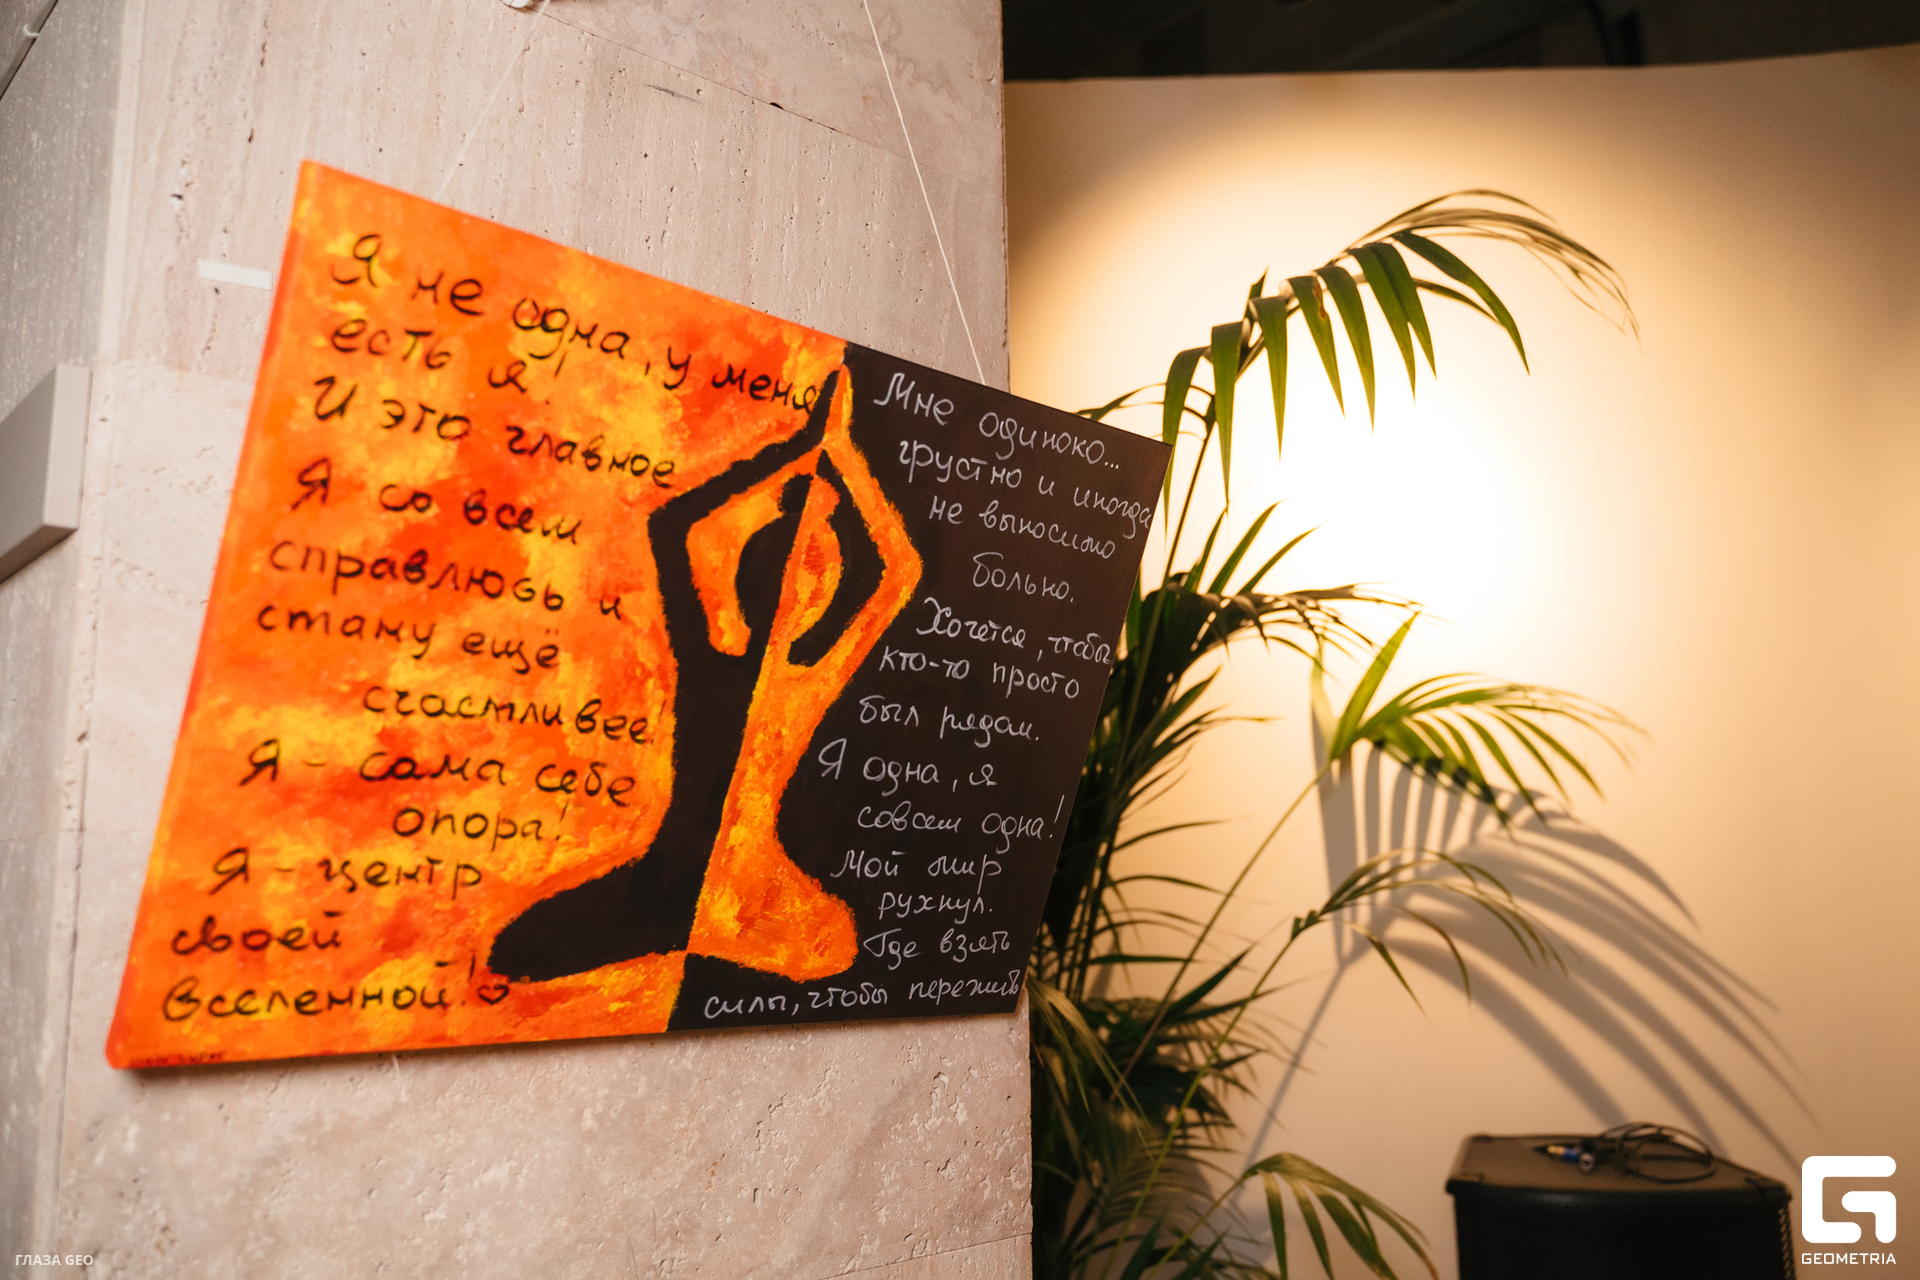 Я не одна, у меня
есть я!
И это главное
Я со всем
справлюсь и
стану ещё
счастливее!
Я - сама себе
опора!
Я - центр
своей
вселенной!
Мне одиноко...
грустно и иногда
не выносимо
больно.
Хочется, чтобы
кто-то просто
был рядом.
Я одна, я
совсем одна!
Мой мир
рухнул.
Где взять
силы, чтобы пережить
ГЛАЗА GEO
GEOMETRIA